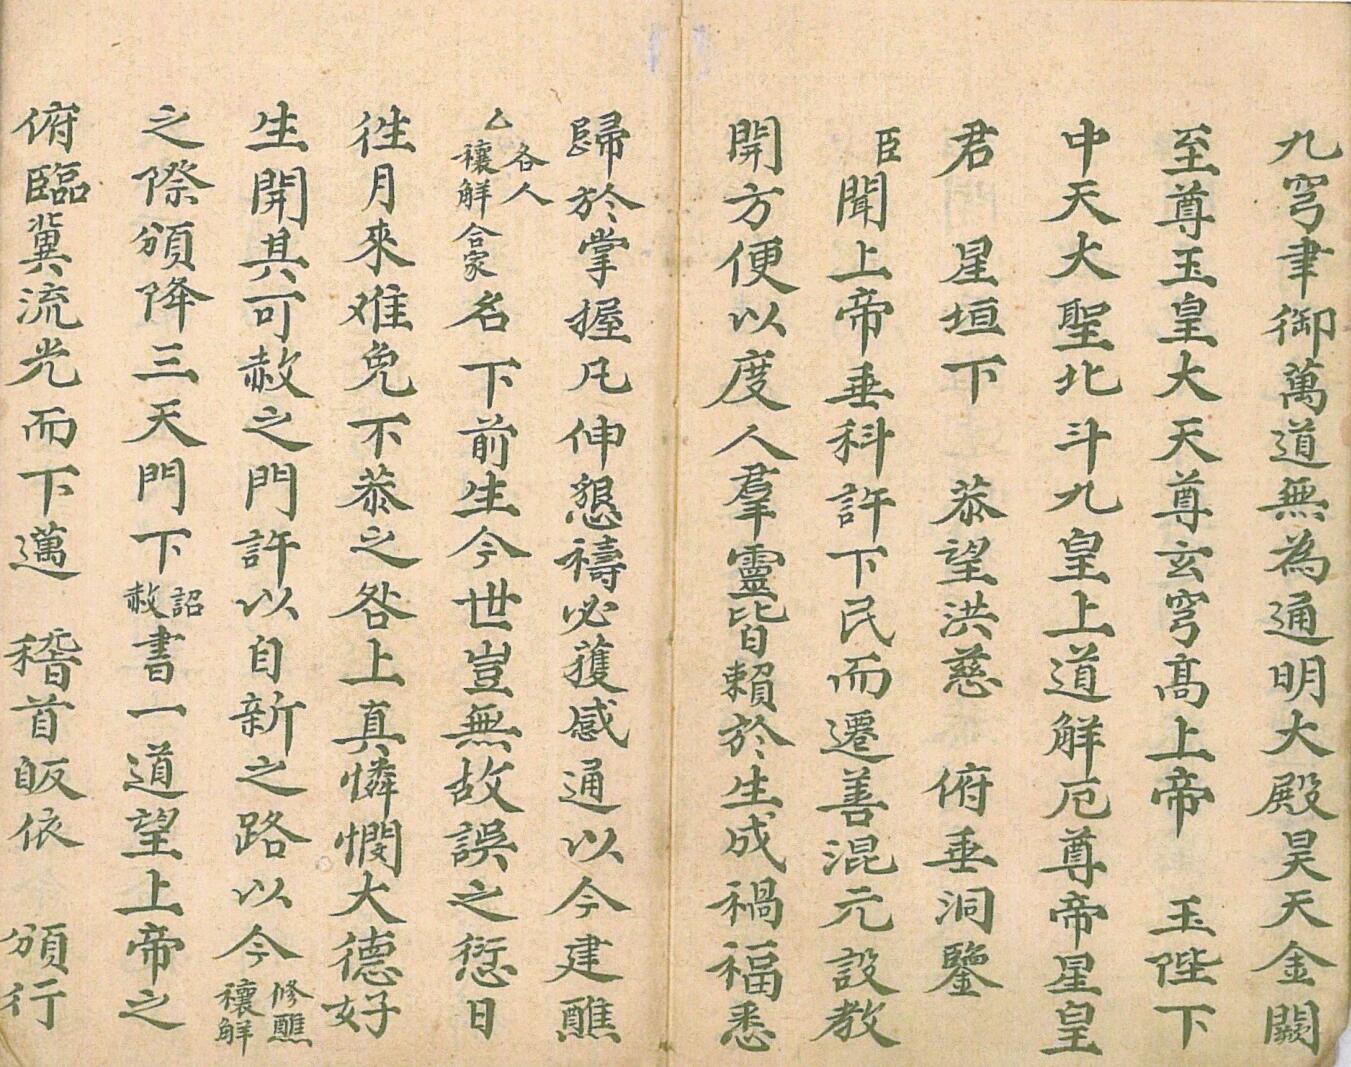 九穹聿御萬道無為通明大殿昊天金闕
至尊玉皇大天尊玄穹高上帝 玉陛下
中天大聖北斗九皇上道解厄尊帝星皇
君 星垣下 恭望洪慈 俯垂洞鑒
臣聞上帝垂科許下民而遷善混元設教
開方便以度人羣靈皆賴於生成禍福悉
歸於掌握凡伸懇禱必獲感通以今建醮
乙各人禳解合家名下前生今世豈無故誤之愆日
徃月來难免不恭之咎上真憐憫大德好
生開其可赦之門許以自新之路以今修醮禳解
之際頒降三天門下詔赦書一道望上帝之
俯臨冀流光而下邁 稽首皈依 頒行